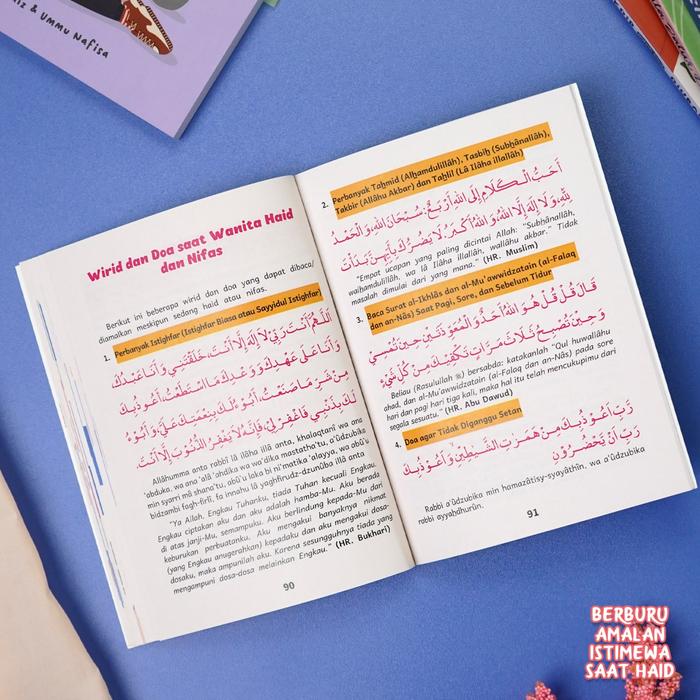 iz & Ummu Nafisa
Wirid dan Doa saat Wanita Haid
dan Nifas
Berikut ini beberapa wirid dan doa yang dapat dibaca/
diamalkan meskipun sedang haid atau nifas.
1. Perbanyak Istighfar (Istighfar Biasa atau Sayyidul Istighfar)
اَللّٰهُمَّ أَنْتَ رَبِّيْ لَا إِلٰهَ إِلَّا أَنْتَ، خَلَقْتَنِيْ وَأَنَا عَبْدُكَ
وَأَنَا عَلَى عَهْدِكَ وَوَعْدِكَ مَا اسْتَطَعْتُ، أَعُوْذُ بِكَ
مِنْ شَرِّ مَا صَنَعْتُ، أَبُوْءُ لَكَ بِنِعْمَتِكَ عَلَيَّ، وَأَبُوْءُ
لَكَ بِذَنْبِيْ فَاغْفِرْ لِيْ، فَإِنَّهُ لَا يَغْفِرُ الذُّنُوْبَ إِلَّا أَنْتَ.
Allâhumma anta rabbî lâ ilâha illâ anta, khalaqtanî wa ana
'abduka, wa ana 'alâ 'ahdika wa wa'dika mastatha'tu, a'ûdzubika
min syarri mâ shana'tu, abû'u laka bi ni'matika 'alayya, wa abû'u
bidzambi fagh-firlî, fa innahu lâ yaghfirudz-dzunûba illâ anta
"Ya Allah, Engkau Tuhanku, tiada Tuhan kecuali Engkau.
Engkau ciptakan aku dan aku adalah hamba-Mu. Aku berada
di atas janji-Mu, semampuku. Aku berlindung kepada-Mu dari
keburukan perbuatanku. Aku mengakui banyaknya nikmat
(yang Engkau anugerahkan) kepadaku dan aku mengakui dosa-
dosaku, maka ampunilah aku. Karena sesungguhnya tiada yang
mengampuni dosa-dosa melainkan Engkau." (HR. Bukhari)
90
2. Perbanyak Taḥmid (Alḥamdulillâh), Tasbiḥ (Subḥânallâh),
Takbir (Allâhu Akbar) dan Taḥlil (Lâ Ilâha illallâh)
أَحَبُّ الْكَلَامِ إِلَى اللهِ أَرْبَعٌ: سُبْحَانَ اللهِ، وَالْحَمْدُ
لِلّٰهِ، وَلَا إِلٰهَ إِلَّا اللهُ، وَاللهُ أَكْبَرُ لَا يَضُرُّكَ بِأَيِّهِنَّ بَدَأْتَ
"Empat ucapan yang paling dicintai Allah: "Subḥânallâh,
walḥamdulillâh, wa lâ ilâha illallâh, wallâhu akbar." Tidak
masalah dimulai dari yang mana." (HR. Muslim)
3. Baca Surat al-Ikhlâs dan al-Mu'awwidzatain (al-Falaq
dan an-Nâs) Saat Pagi, Sore, dan Sebelum Tidur
قَالَ قُلْ قُلْ هُوَ اللهُ أَحَدٌ وَالْمُعَوِّذَتَيْنِ حِيْنَ تُمْسِيْ
وَحِيْنَ تُصْبِحُ ثَلَاثَ مَرَّاتٍ تَكْفِيْكَ مِنْ كُلِّ شَيْءٍ
Beliau (Rasulullah ﷺ) bersabda: katakanlah "Qul huwallâhu
ahad, dan al-Mu'awwidzatain (al-Falaq dan an-Nâs) pada sore
hari dan pagi hari tiga kali, maka hal itu telah mencukupimu dari
segala sesuatu." (HR. Abu Dawud)
4. Doa agar Tidak Diganggu Setan
رَبِّ أَعُوْذُ بِكَ مِنْ هَمَزَاتِ الشَّيٰطِيْنِ وَأَعُوْذُ بِكَ
رَبِّ أَنْ يَحْضُرُوْنِ
Rabbi a'ûdzubika min hamazâtisy-syayâthîn, wa a'ûdzubika
rabbi ayyahdhurûn.
91
BERBURU
AMALAN
ISTIMEWA
SAAT HAID